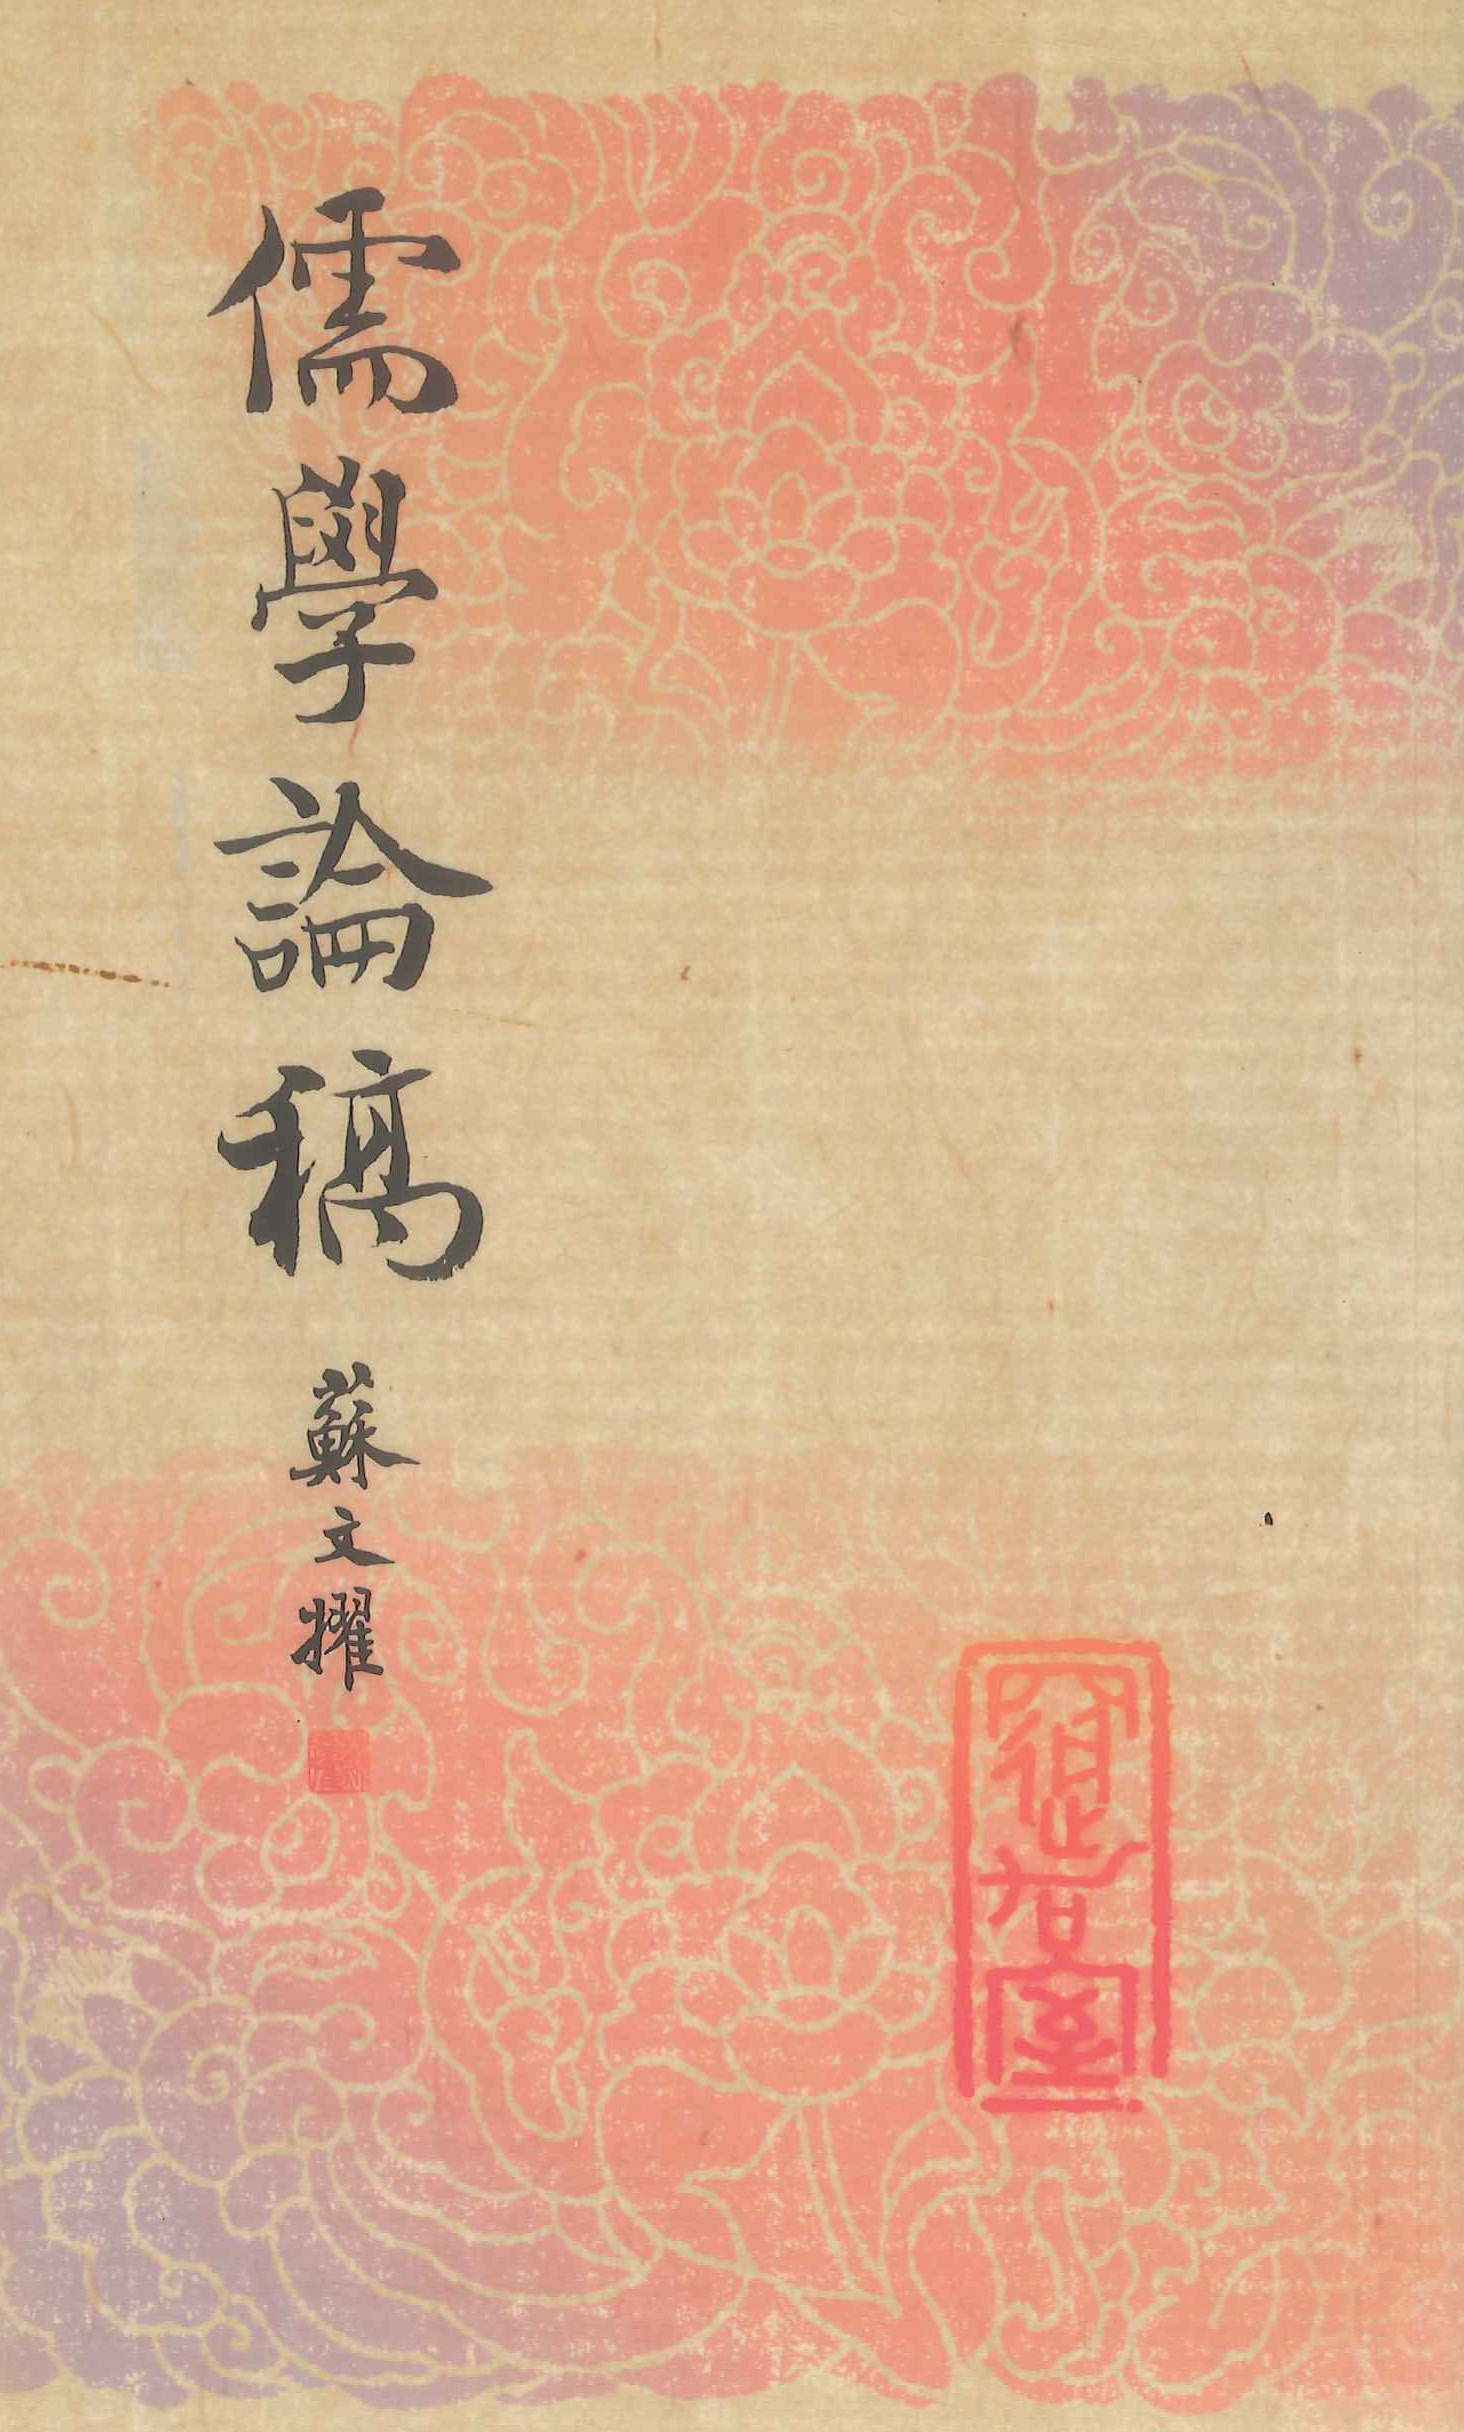 儒學論稿
蘇文擢
邃加室